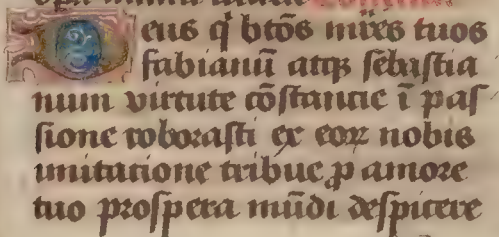 Deus q̇ btōs mr̄es tuos
fabianū atqꝫ sebastia
num virtute cōstancie ī pas
sione roborasti ex eoꝝ nobis
imitatione tribue ꝓ amore
tuo prospera mūdi despicere